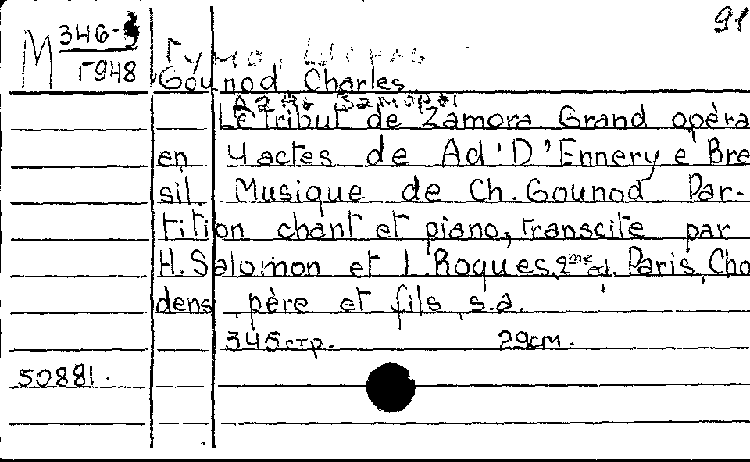 91
M 346-5
Г948
Гуно, Шарль
Gounod Charles
Дань Заморы
Le tribut de Zamora Grand opèra
en 4 actes de Ad'D'Ennery e Bre
sil. Musique de Ch. Gounod Par-
tition chant et piano, transcite par
H. Salomon et L. Roques, 2me ed. Paris, Cho
dens père et fils, s.a.
345 стр. 29 см.
50881.